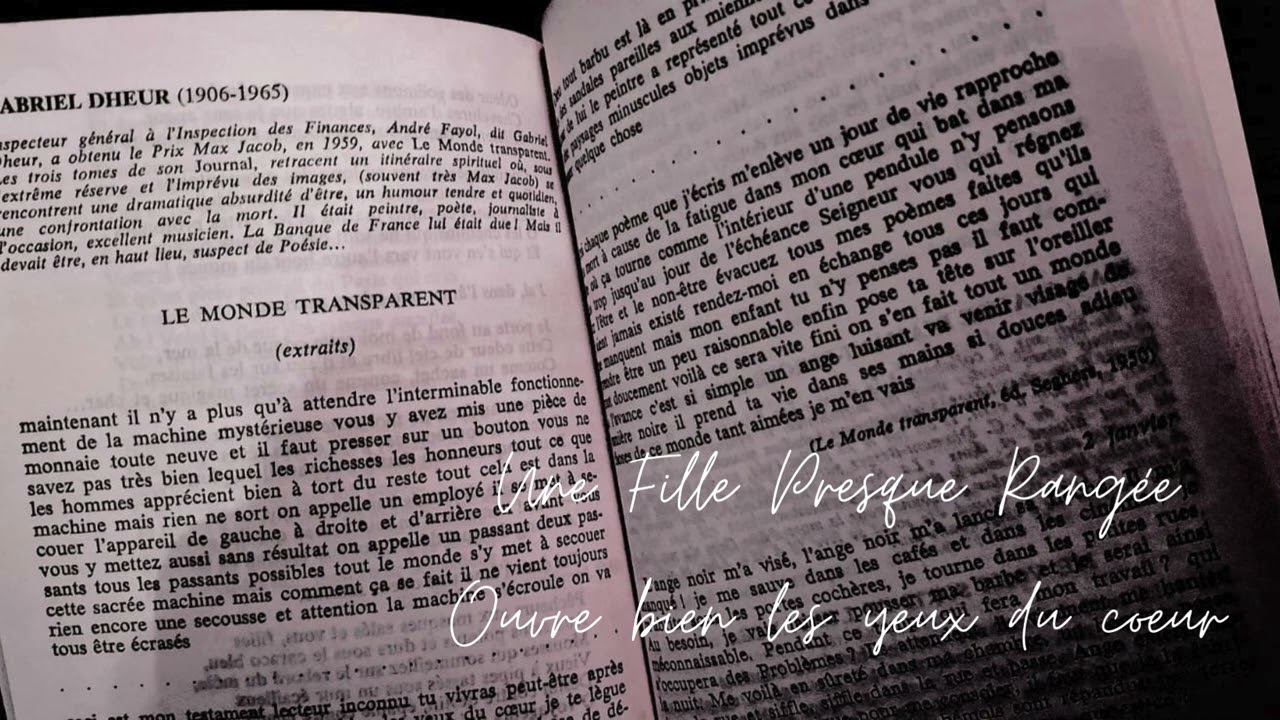 ABRIEL DHEUR (1906-1965)
nspecteur général à l'Inspection des Finances, André Fayol, dit Gabriel
Dheur, a obtenu le Prix Max Jacob, en 1959, avec Le Monde transparent.
Les trois tomes de son Journal, retracent un itinéraire spirituel où, sous
l'extrême réserve et l'imprévu des images, (souvent très Max Jacob) se
rencontrent une dramatique absurdité d'être, un humour tendre et quotidien,
une confrontation avec la mort. Il était peintre, poète, journaliste à
l'occasion, excellent musicien. La Banque de France lui était due ! Mais il
devait être, en haut lieu, suspect de Poésie...
LE MONDE TRANSPARENT
(extraits)
maintenant il n'y a plus qu'à attendre l'interminable fonctionne-
ment de la machine mystérieuse vous y avez mis une pièce de
monnaie toute neuve et il faut presser sur un bouton vous ne
savez pas très bien lequel les richesses les honneurs tout ce que
les hommes apprécient bien à tort du reste tout cela est dans la
machine mais rien ne sort on appelle un employé il se met à se-
couer l'appareil de gauche à droite et d'arrière en avant vous
vous y mettez aussi sans résultat on appelle un passant deux pas-
sants tous les passants possibles tout le monde s'y met à secouer
cette sacrée machine mais comment ça se fait il ne vient toujours
rien encore une secousse et attention la machine s'écroule on va
tous être écrasés
. . . . . . . . . . . . . . .
est mon testament lecteur inconnu tu vivras peut-être après
yeux du cœur je te lègue
de dé-
tout barbu est là en
sandales pareilles aux
de lui le peintre a représenté tout
paysages minuscules objets imprévus dans
quelque chose
. . . . . . . . . . . . . . .
chaque poème que j'écris m'enlève un jour de vie rapproche
mort à cause de la fatigue dans mon cœur qui bat dans ma
où ça tourne comme l'intérieur d'une pendule n'y pensons
trop jusqu'au jour de l'échéance Seigneur vous qui régnez
l'être et le non-être évacuez tous mes poèmes faites qu'ils
jamais existé rendez-moi en échange tous ces jours qui
manquent mais mon enfant tu n'y penses pas il faut com-
être un peu raisonnable enfin pose ta tête sur l'oreiller
doucement voilà ce sera vite fini on s'en fait tout un monde
l'avance c'est si simple un ange luisant va venir visage de
noire il prend ta vie dans ses mains si douces adieu
de ce monde tant aimées je m'en vais
(Le Monde transparent, éd. Seghers, 1950)
2 Janvier
Une Fille Presque Rangée
ange noir m'a visé, l'ange noir m'a
manqué ! je me sauve dans les cafés et dans les
les portes cochères, je tourne dans les petites rues.
Au besoin, je ma barbe et je serai ainsi
méconnaissable. Pendant ce qui fera mon travail ? qui
s'occupera des Problèmes ?
la nuit. Me voilà en sûreté dans ma
Ouvre bien les yeux du coeur